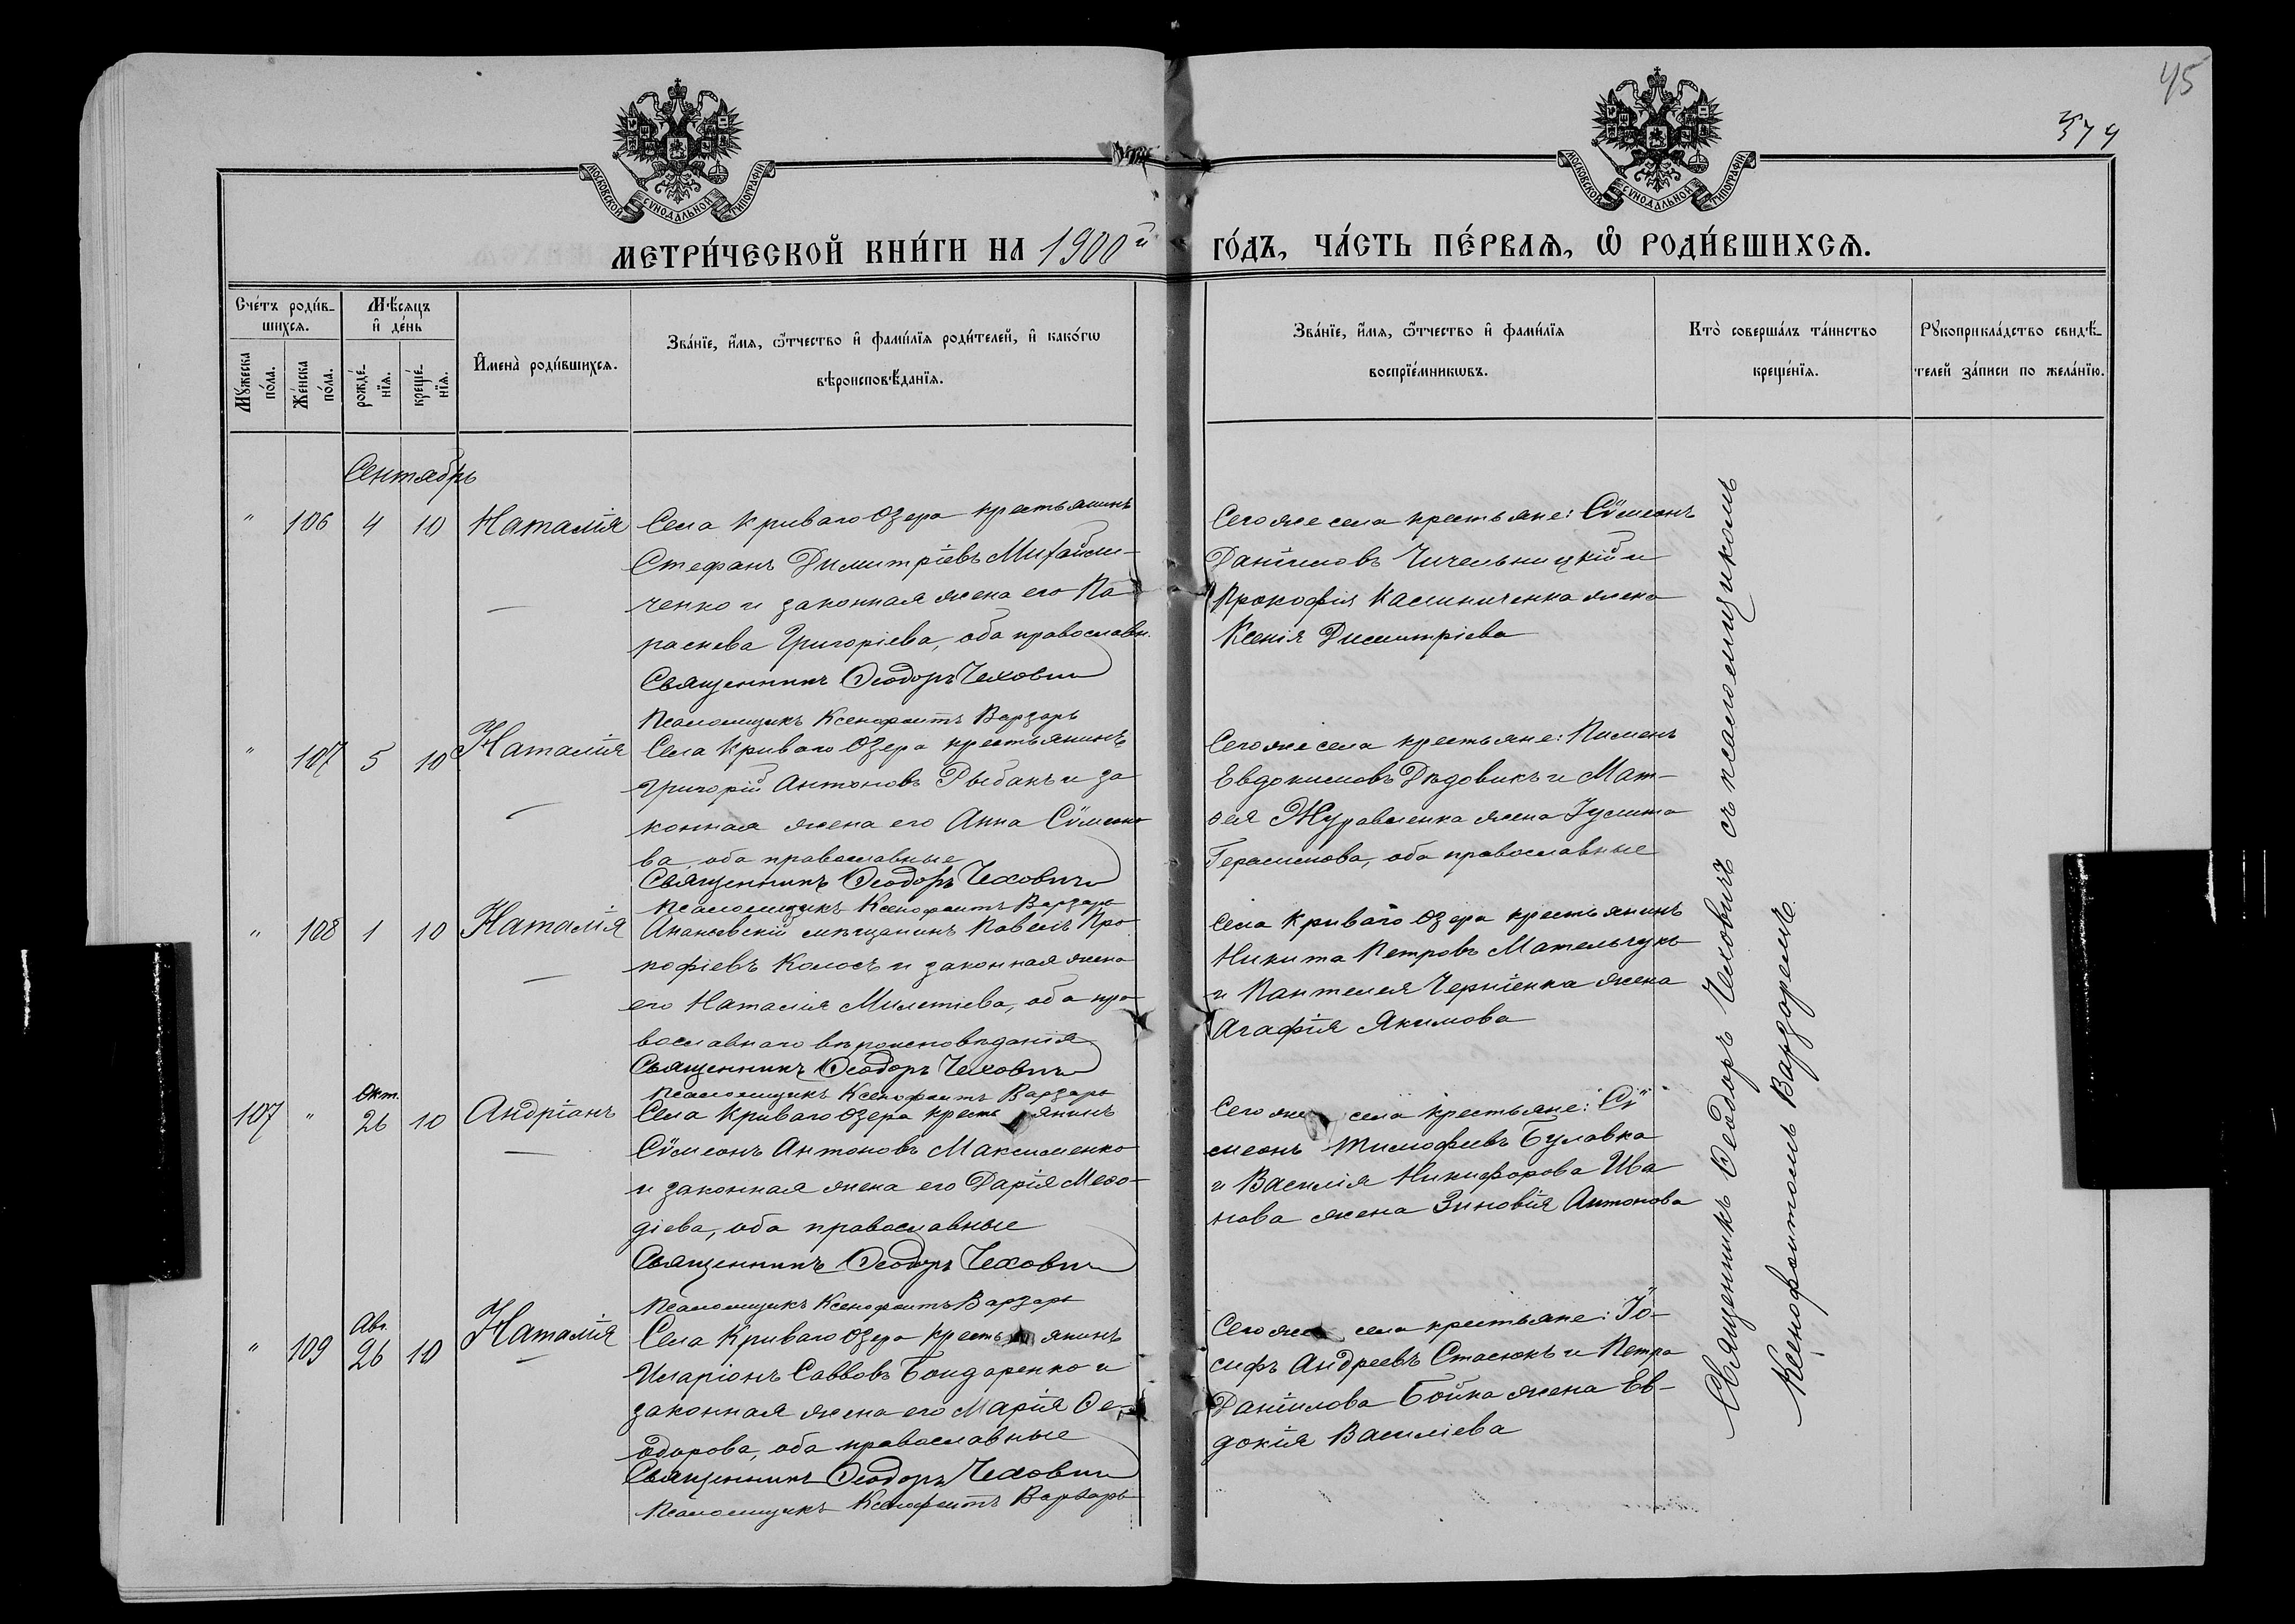 45
574
МОСКОВСКОЙ СѴНОДАЛЬНОЙ ТИПОГРАФІИ
МОСКОВСКОЙ СѴНОДАЛЬНОЙ ТИПОГРАФІИ
МЕТРИ́ЧЕСКОЙ КНИ́ГИ НА 1900й
ГО́ДЪ, ЧА́СТЬ ПЕ́РВАѦ, Ѡ҆ РОДИ́ВШИХСѦ.
Сче́тъ роди́в-
шихсѧ.
Мꙋ́жеска по́ла.
Же́нска по́ла.
Мѣ́сѧцъ
и҆ де́нь
рожде́-
нїѧ.
креще́-
нїѧ.
И҆мена̀ роди́вшихсѧ.
Зва́нїе, и҆́мѧ, ѻ҆́тчество и҆ фами́лїѧ роди́телей, и҆ како́гѡ
вѣроисповѣ́данїѧ.
Зва́нїе, и҆́мѧ, ѻ҆́тчество и҆ фами́лїѧ
воспрїе́мникѡвъ.
Кто̀ соверша́лъ та́инство
креще́нїѧ.
Рꙋкоприкла́дство свидѣ́-
телей за́писи по жела́нїю.
Сентябрь
" 106 4 10 Наталія
Села Криваго Озера крестьянинъ
Стефанъ Димитріевъ Михайли-
ченко и законная жена его Па-
раскева Григоріева, оба православн.
Священникъ Ѳеодоръ Чехович
Псаломщикъ Ксенофонтъ Варзарь
Сего же села крестьяне: Сѵмеонъ
Даніиловъ Чичельницкій и
Прокофія Калиниченка жена
Ксенія Димитріева
" 107 5 10 Наталія
Села Криваго Озера крестьянинъ
Григорій Антоновъ Рыбакъ и за
конная жена его Анна Сѵмеоно
ва, оба православные
Священникъ Ѳеодоръ Чехович
Псаломщикъ Ксенофонтъ Варзарь
Сего же села крестьяне: Пименъ
Евдокимовъ Дѣдовикъ и Мат-
ѳея Журавленка жена Іулита
Герасимова, оба православные
" 108 1 10 Наталія
Ананьевскій мѣщанинъ Павелъ Про
кофіевъ Колосъ и законная жена
его Наталія Милетіева, оба пра
вославнаго вѣроисповѣданія
Священникъ Ѳеодоръ Чехович
Псаломщикъ Ксенофонтъ Варзарь
Села Криваго Озера крестьянинъ
Никита Петровъ Мательчукъ
и Пантелея Черніенка жена
Агафія Якимова
107 " Окт. 26 10 Андріанъ
Села Криваго Озера крестьянинъ
Сѵмеонъ Антоновъ Максименко
и законная жена его Дарія Меѳо-
діева, оба православные
Священникъ Ѳеодоръ Чехович
Псаломщикъ Ксенофонтъ Варзарь
Сего же села крестьяне: Сѵ
меонъ Тимофеевъ Булавка
и Василія Никифорова Ива
нова жена Зиновія Антонова
" 109 Авг. 26 10 Наталія
Села Криваго Озера крестьянинъ
Иларіонъ Саввовъ Бондаренко и
законная жена его Марія Ѳе-
одорова, оба православные
Священникъ Ѳеодоръ Чехович
Псаломщикъ Ксенофонтъ Варзарь
Сего же села крестьяне: Іо-
сифъ Андреевъ Стасюкъ и Петра
Даніилова Бойка жена Ев-
докія Василіева
Священникъ Ѳеодоръ Чеховичъ съ псаломщикомъ
Ксенофонтомъ Варзаремъ.